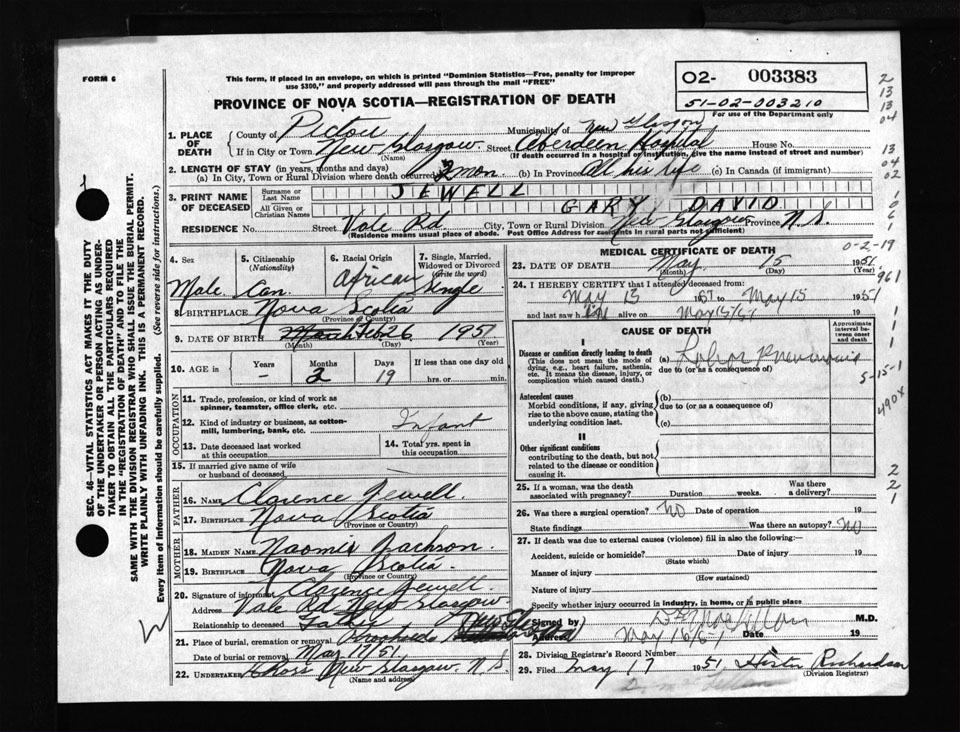 FORM 6
This form, if placed in an envelope, on which is printed "Dominion Statistics—Free, penalty for improper
use $300," and properly addressed will pass through the mail "FREE"
02- 003383
51-02-003210
For use of the Department only
PROVINCE OF NOVA SCOTIA—REGISTRATION OF DEATH
1. PLACE OF DEATH
County of Pictou Municipality of New Glasgow
If in City or Town New Glasgow Street Aberdeen Hospital House No.
(Name) (If death occurred in a hospital or institution, give the name instead of street and number)
2. LENGTH OF STAY (in years, months and days)
(a) In City, Town or Rural Division where death occurred 2 mon. (b) In Province All his life (c) In Canada (if immigrant)
3. PRINT NAME OF DECEASED
Surname or Last Name JEWELL
All Given or Christian Names GARY DAVID
RESIDENCE No. Street Vale Rd. City, Town or Rural Division New Glasgow Province N.S.
(Residence means usual place of abode. Post Office Address for residents in rural parts not sufficient)
4. Sex Male
5. Citizenship (Nationality) Can.
6. Racial Origin African
7. Single, Married, Widowed or Divorced (Write the word) Single
8. BIRTHPLACE Nova Scotia
(Province or Country)
9. DATE OF BIRTH March Feb 26 1951
(Month) (Day) (Year)
10. AGE in Years - Months 2 Days 19 If less than one day old
hrs. or min.
OCCUPATION
11. Trade, profession, or kind of work as spinner, teamster, office clerk, etc.
12. Kind of industry or business, as cotton-mill, lumbering, bank, etc. Infant
13. Date deceased last worked at this occupation
14. Total yrs. spent in this occupation
15. If married give name of wife or husband of deceased —
FATHER
16. NAME Clarence Jewell.
17. BIRTHPLACE Nova Scotia
(Province or Country)
MOTHER
18. MAIDEN NAME Naomi Jackson.
19. BIRTHPLACE Nova Scotia.
(Province or Country)
20. Signature of informant Clarence Jewell
Address Vale Rd New Glasgow
Relationship to deceased Father
21. Place of burial, cremation or removal New Glasgow
Date of burial or removal May 17/51.
22. UNDERTAKER New Glasgow, N.S.
(Name and address)
MEDICAL CERTIFICATE OF DEATH
23. DATE OF DEATH May 15 1951
(Month) (Day) (Year)
24. I HEREBY CERTIFY that I attended deceased from:
May 13 1951 to May 15 1951
and last saw him alive on May 15/51 19
CAUSE OF DEATH
Approximate interval between onset and death
I
Disease or condition directly leading to death (a) Lobar Pneumonia
(This does not mean the mode of dying, e.g., heart failure, asthenia, etc. It means the disease, injury, or complication which caused death.)
due to (or as a consequence of)
Antecedent causes
Morbid conditions, if any, giving rise to the above cause, stating the underlying condition last.
(b)
due to (or as a consequence of)
(c)
II
Other significant conditions
contributing to the death, but not related to the disease or condition causing it.
25. If a woman, was the death associated with pregnancy? Duration weeks. Was there a delivery?
26. Was there a surgical operation? No Date of operation 19
State findings Was there an autopsy? No
27. If death was due to external causes (violence) fill in also the following:—
Accident, suicide or homicide? Date of injury 19
(State which)
Manner of injury
(How sustained)
Nature of injury
Specify whether injury occurred in industry, in home, or in public place
Signed by M.D.
Address May 16/51 Date 19
28. Division Registrar's Record Number
29. Filed May 17 1951 Richardson
(Division Registrar)
SEC. 46—VITAL STATISTICS ACT MAKES IT THE DUTY
OF THE UNDERTAKER OR PERSON ACTING AS UNDER-
TAKER TO OBTAIN ALL THE PARTICULARS REQUIRED
IN THE "REGISTRATION OF DEATH" AND TO FILE THE
SAME WITH THE DIVISION REGISTRAR WHO SHALL ISSUE THE BURIAL PERMIT.
WRITE PLAINLY WITH UNFADING INK. THIS IS A PERMANENT RECORD.
Every item of information should be carefully supplied. (See reverse side for instructions.)
2
13
13
04
13
04
02
0-2-19
961
5-15-1
490X
2
2
1